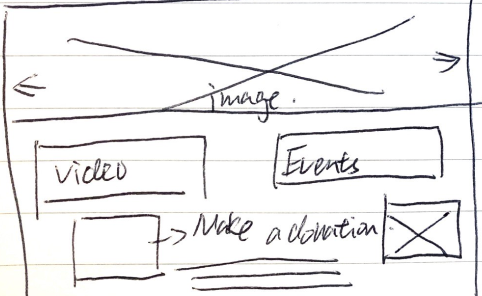 image.
video
Events
Make a donation